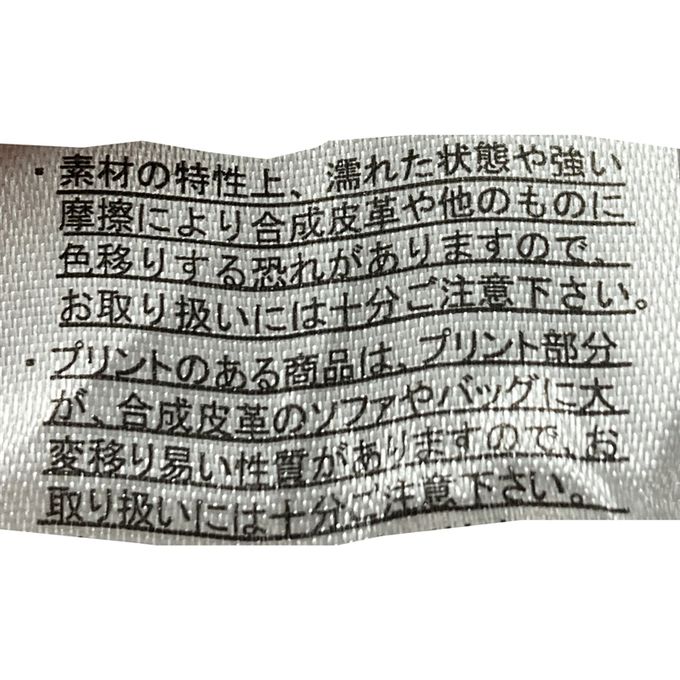 ・素材の特性上、濡れた状態や強い
摩擦により合成皮革や他のものに
色移りする恐れがありますので、
お取り扱いには十分ご注意下さい。
・プリントのある商品は、プリント部分
が、合成皮革のソファやバッグに大
変移り易い性質がありますので、お
取り扱いには十分ご注意下さい。